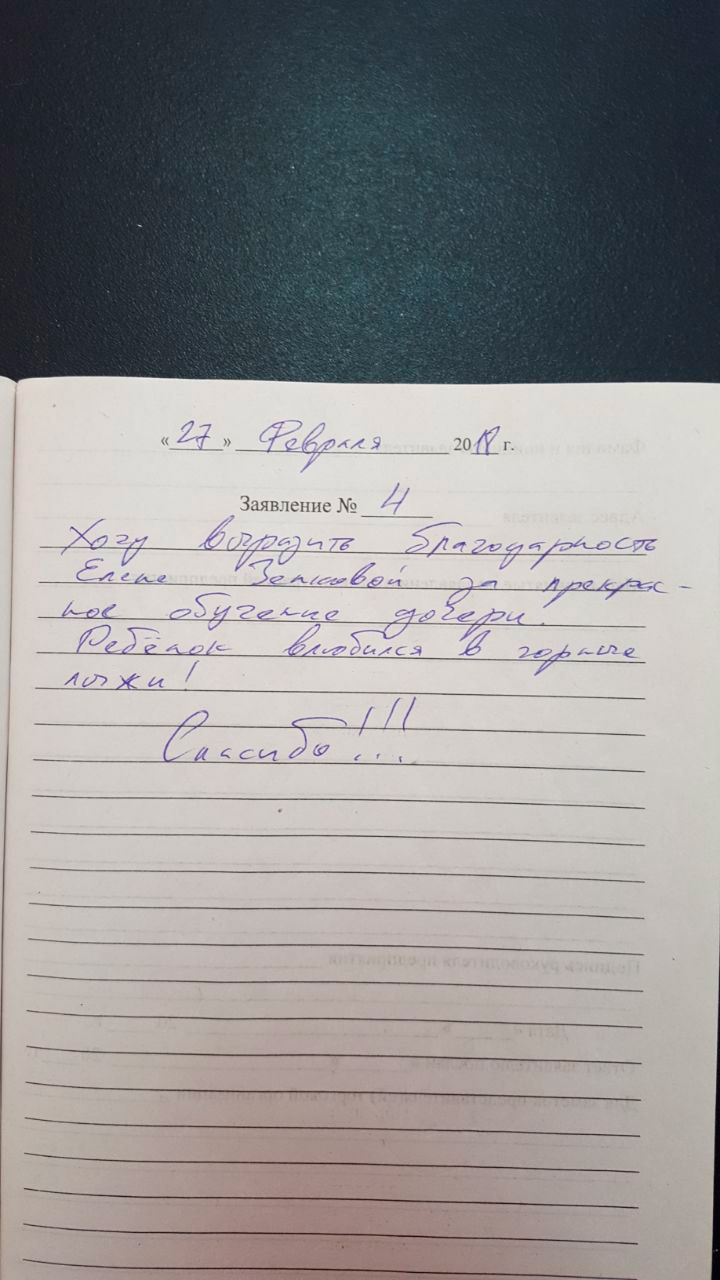 « 27 » Февраля 2018 г.
Заявление № 4
Хочу выразить благодарность
Елене за прекрас-
ное обучение дочери.
Ребёнок влюбился в горные
лыжи!
Спасибо!!!